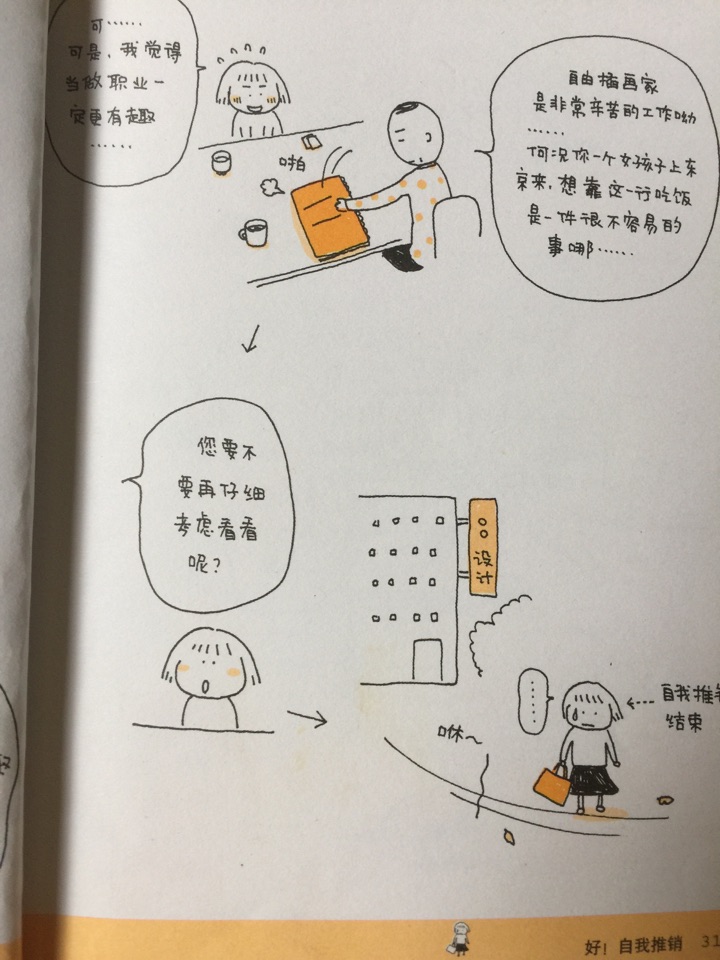 可……
可是，我觉得
当做职业一
定更有趣
……
自由插画家
是非常辛苦的工作呦
……
何况你一个女孩子上东
京来，想靠这一行吃饭
是一件很不容易的
事哪……
啪
您要不
要再仔细
考虑看看
呢？
○○设计
……
自我推销
结束
咻～
好！自我推销 31